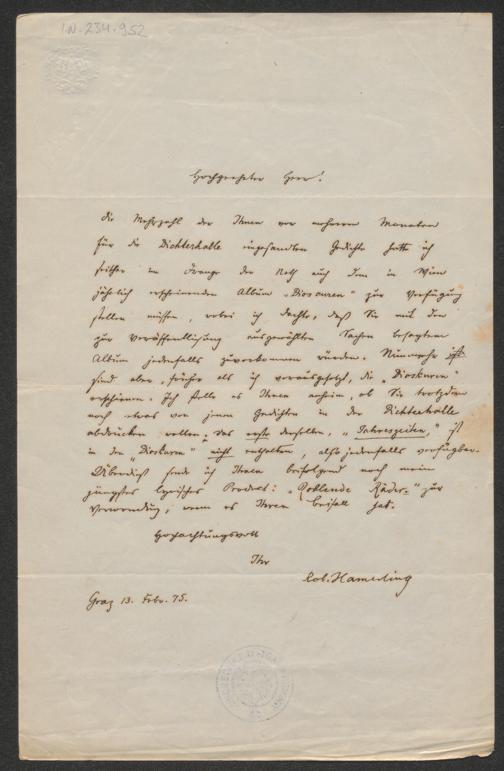 I.N. 234.952
Hochgeehrter Herr!
Die Mehrzahl der Ihnen vor mehreren Monaten
für die Dichterhalle eingesandten Gedichte hatte ich
seither im Drange der Noth auch dem in Wien
jährlich erscheinenden Album "Dioscuren" zur Verfügung
stellen müssen, wobei ich dachte, daß Sie mit den
zur Veröffentlichung ausgewählten Sachen besagtem
Album jedenfalls zuvorkommen würden. Nunmehr
sind aber, früher als ich vorausgesetzt, die "Dioskuren"
erschienen. Ich stelle es Ihnen anheim, ob Sie trotzdem
noch etwas von jenen Gedichten in der Dichterhalle
abdrucken wollen. Das erste derselben, "Jahreszeiten," ist
in den "Dioskuren" nicht enthalten, also jedenfalls verfügbar.
Überdieß sende ich Ihnen beifolgend noch mein
jüngstes lyrisches Product: "Rollende Räder" zur
Verwendung, wenn es Ihren Beifall hat.
Hochachtungsvoll
Ihr
Rob. Hamerling
Graz 13. Febr. 75.